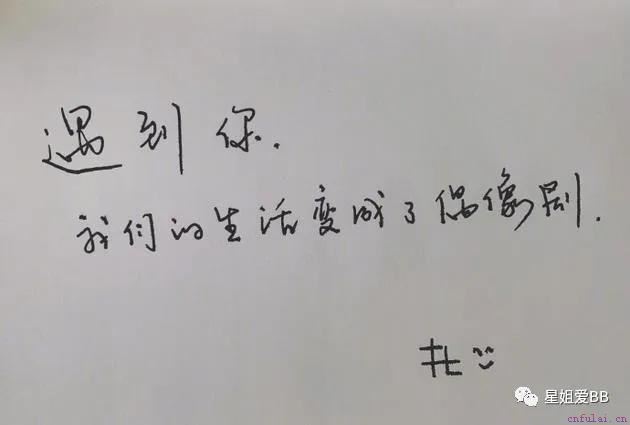 遇到你.
我们的生活变成了偶像剧.
星姐爱BB
cnfulai.cn